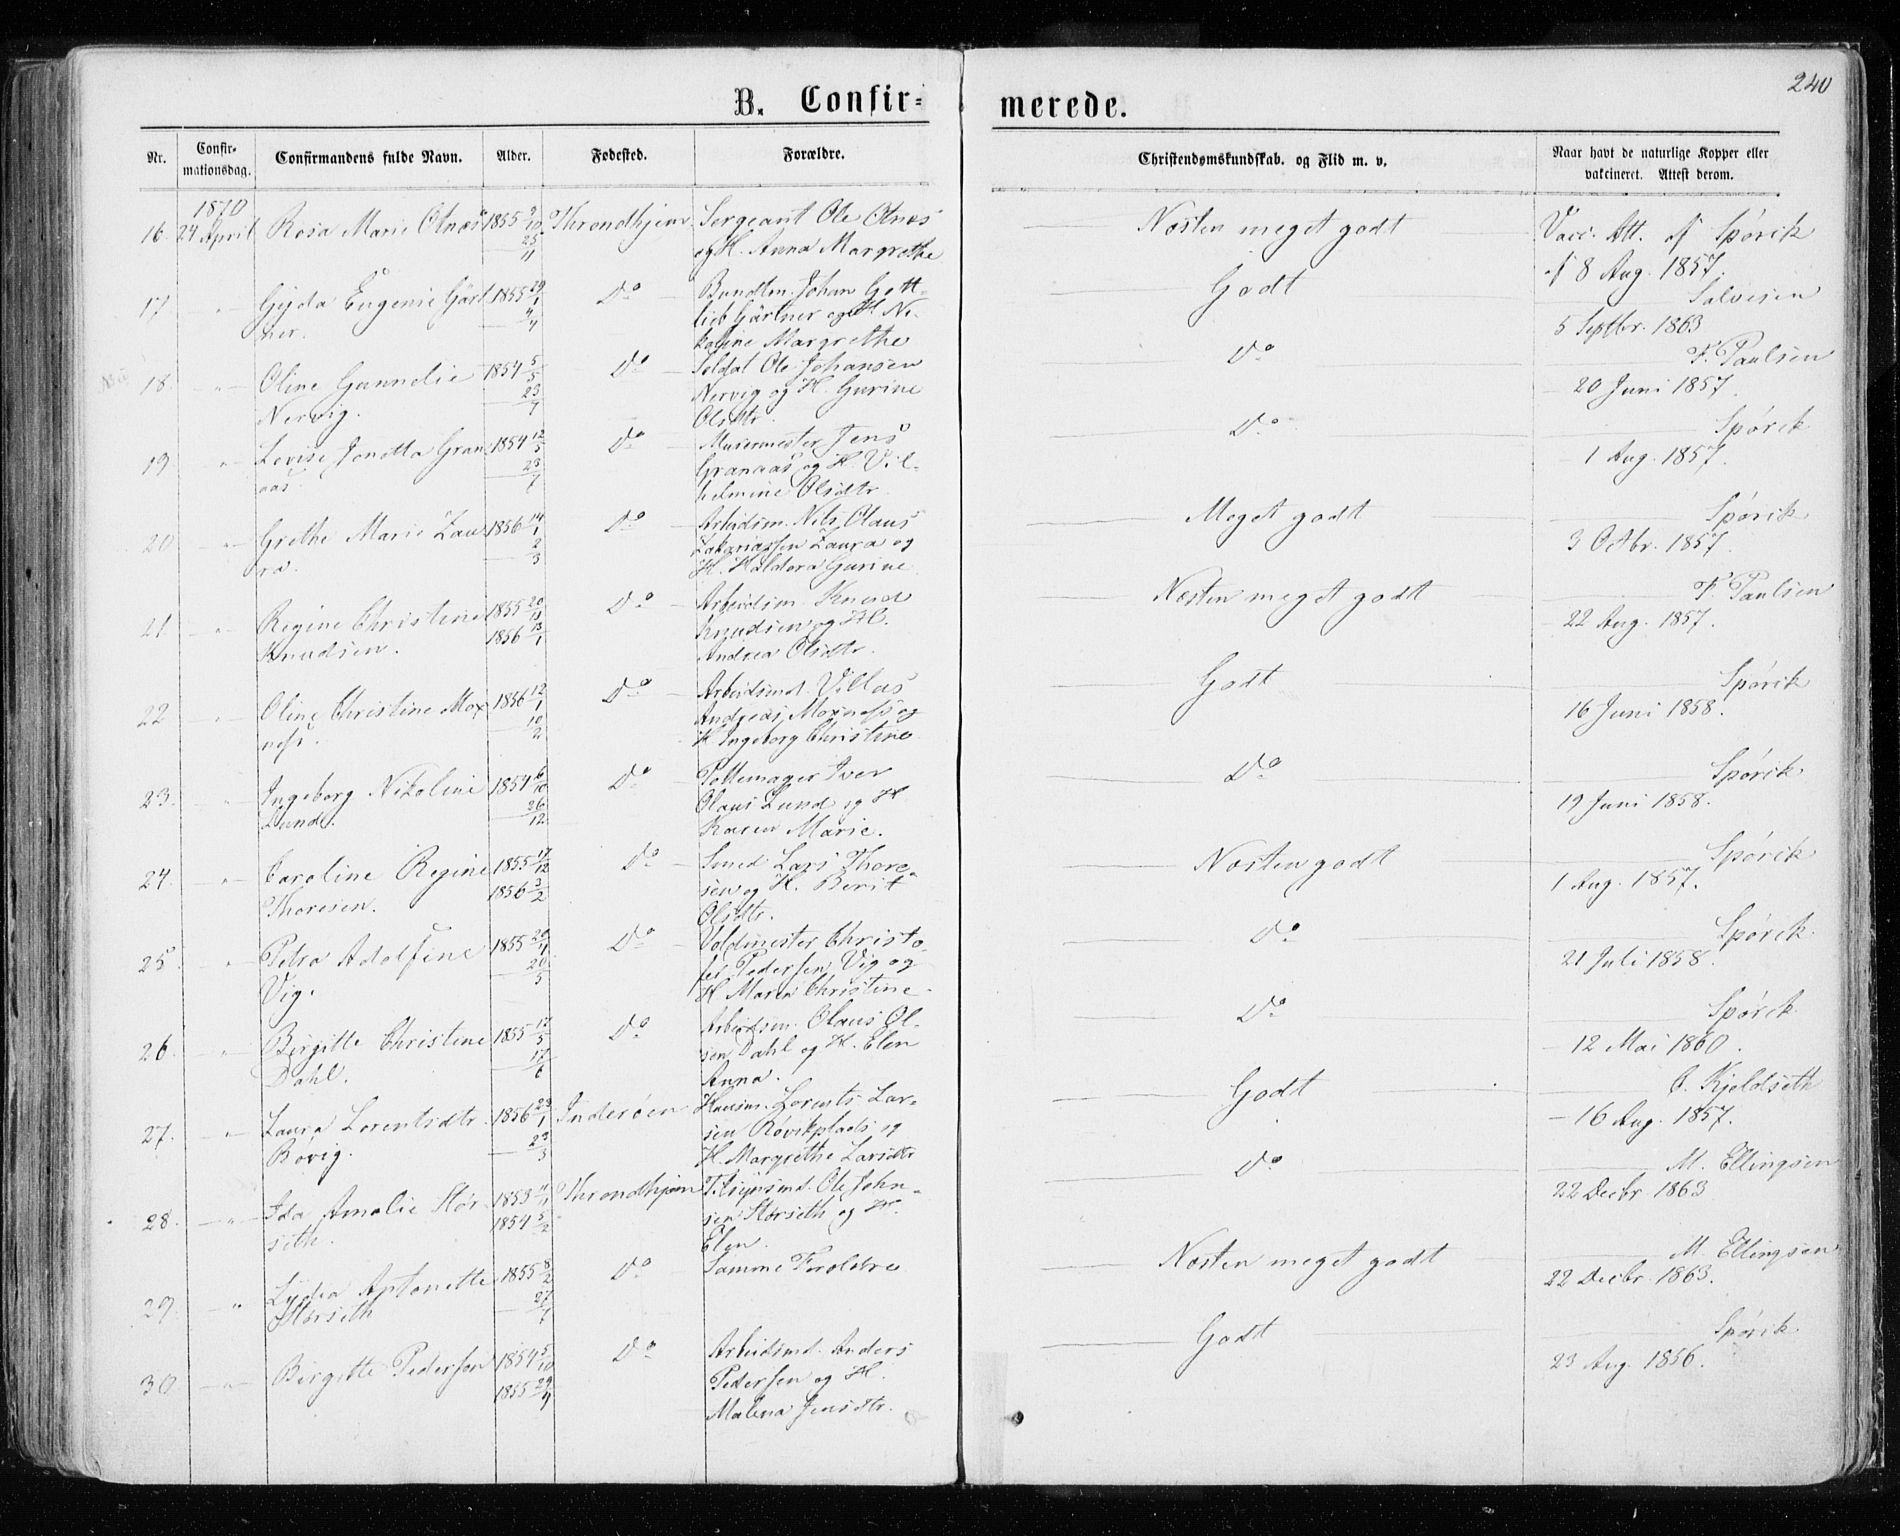 240
B. Confir=
merede.
Nr.
Confir-
mationsdag.
Confirmandens fulde Navn.
Alder.
Fødested.
Forældre.
Christendomskundskab. og Flid m. v.
Naar havt de naturlige Kopper eller
vakcineret. Attest derom.
1870
16 24 April Rosa Marie Olnæs 1855 Throndhjem Sergeant Ole Olnæs
og H. Anna Margrethe
Næsten meget godt
Vacc. Att. af Spørck
af 8 Aug. 1857.
17 " Gyda Eugenie Gärt 1855 29/1 Do Bundtm. Johan Gott-
ner. lieb Gärtner og H Ni-
koline Margrethe
Godt
Salvesen
5 Septbr. 1863
18. " Oline Gunnelie 1854 5/5 Do Soldat Ole Johansen
Nervig. 23/7 Nervig og H. Gurine
Olsdtr.
Do
F. Paulsen
20 Juni 1857.
19 " Lovise Jonetta Gran 1854 12/5 Do Murermester Jens
aas. 23/7 Granaas og H. Vil-
helmine Olsdtr.
Do
Spørck
1 Aug. 1857.
20 " Grethe Marie Zau 1856 14/1 Do Arbeidsm. Nils Olaus
ra. 2/3 Zakariassen Zaura og
H. Haldora Gurine
Meget godt
Spørck
3 Octbr. 1857.
21 " Regine Christine 1855 20/11 Do Arbeidsm. Knud
Knudsen. 1856 13/1 Knudsen og H.
Andrea Olsdtr.
Næsten meget godt
F. Paulsen
22 Aug. 1857.
22 " Oline Christine Mox 1856 12/1 Do Arbeidsmd. Villas
nes. 10/2 Andreas Moxness og
H Ingeborg Christine
Godt
Spørck
16 Juni 1858.
23. " Ingeborg Nikoline 1854 6/10 Do Pottemager Iver
Lund. 26/12 Olaus Lund og H
Karen Marie.
Do
Spørck
19 Juni 1858.
24. " Caroline Regine 1855 17/12 Do Smed Lars Thore-
Thoresen. 1856 3/2 sen og H. Berit
Olsdtr.
Næsten godt
Spørck
1 Aug. 1857.
25 " Petra Adolfine 1855 Do Voldmester Christo-
Vig. 20/5 fer Pedersen Vig og
H Maren Christine
Do
Spørck
21 Juli 1858.
26. " Birgitte Christine 1855 17/5 Do Arbeidsm. Olaus Ol-
Dahl. 17/6 sen Dahl og H. Elen
Anna.
Do
Spørck
12 Mai 1860.
27. " Laura Lorentsdtr. 1856 23/1 Inderøen Huusm. Lorents Lar-
Røvig. 23/3 sen Røvikplads og
H. Margrethe Larsdtr
Godt
C. Kjeldseth
16 Aug. 1857.
28. " Ida Amalie Stør 1853 Throndhjem Ole John-
seth. 1854 5/2 sen Størseth og H.
Elen.
Do
M. Ellingsen
22 Decbr 1863
29. " Lydia Antonette 1855 8/2 Do Samme Forældre
Størseth
Næsten meget godt
M. Ellingsen
22 Decbr. 1863.
30 " Birgitte Pedersen 1854 5/10 Do Arbeidsmd. Anders
1855 Pedersen og H.
Malena Jensdtr.
Godt
Spørck
23 Aug. 1856.